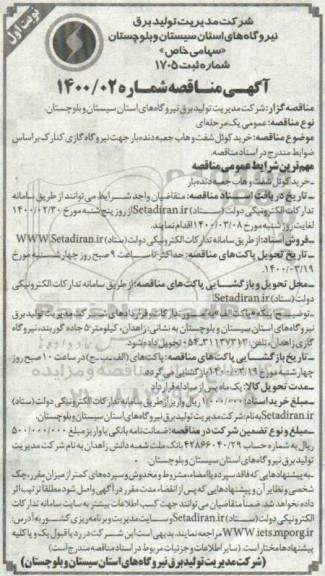 نوبت اول
شرکت مدیریت تولید برق
نیروگاه‌های استان سیستان و بلوچستان
«سهامی خاص»
شماره ثبت ۱۷۰۵
آگهی مناقصه شماره ۱۴۰۰/۰۲
مناقصه گزار: شرکت مدیریت تولید برق نیروگاه های استان سیستان و بلوچستان.
نوع مناقصه: عمومی یک مرحله‌ای
موضوع مناقصه: خرید کوئل شفت و هاب جعبه دنده بار جهت نیروگاه گازی کنارک براساس
ضوابط مندرج در اسناد مناقصه.
مهم‌ترین شرایط عمومی مناقصه
-خرید کوئل شفت و هاب جعبه دنده بار
ـ تاریخ دریافت اسناد مناقصه: متقاضیان واجد شرایط می‌توانند از طریق سامانه
تدارکات الکترونیکی دولت (ستاد) Setadiran.ir از روز پنج شنبه مورخ ۱۴۰۰/۰۲/۳۰
لغایت روز شنبه مورخ ۱۴۰۰/۰۳/۰۸ اقدام نمایند.
ـ فروش اسناد: از طریق سامانه تدارکات الکترونیکی دولت (ستاد) WWW.Setadiran.ir
ـ تاریخ تحویل پاکت‌های مناقصه: حداکثر تا ساعت ۹ صبح روز چهارشنبه مورخ
۱۴۰۰/۰۳/۱۹.
ـ محل تحویل و بازگشایی پاکت‌های مناقصه: از طریق سامانه تدارکات الکترونیکی
دولت (ستاد) Setadiran.ir
توضیح اینکه «پاکت الف» به امور تدارکات و قراردادهای شرکت مدیریت تولید برق
نیروگاه های استان سیستان و بلوچستان به نشانی: زاهدان، کیلومتر ۵ جاده گوربند، نیروگاه
گازی زاهدان، تلفن: ۳۱۱۳۷۳۶۲-۰۵۴ تحویل داده شود.
ـ تاریخ بازگشایی پاکت‌های مناقصه: پاکت‌های (الف-ب-ج) در ساعت ۱۰ صبح روز
چهارشنبه مورخ ۱۴۰۰/۰۳/۱۹ بازگشایی می‌گردد.
ـ مدت تحویل کالا: یک ماه پس از مبادله قرارداد
ـ مبلغ خرید اسناد: ریال واریز از طریق سامانه تدارکات الکترونیکی دولت (ستاد)
Setadiran.ir به نام شرکت مدیریت تولید برق نیروگاه های استان سیستان و بلوچستان.
ـ مبلغ و نوع تضمین شرکت در مناقصه: ضمانت‌نامه بانکی یا واریز مبلغ ۵۰۰/۰۰۰/۰۰۰
ریال به شماره حساب بانک ملت شعبه دانش زاهدان به نام شرکت مدیریت
تولید برق نیروگاه های استان سیستان و بلوچستان.
ـ به پیشنهادهایی که فاقد سپرده یا امضاء، مشروط و مخدوش و سپرده‌های کمتر از میزان مقرر، چک
شخصی و نظایر آن و پیشنهادهایی که پس از انقضاء مدت مقرر در آگهی واصل شود مطلقا ترتیب اثر
داده نخواهد شد. ضمنا متقاضیان می‌توانند جهت کسب اطلاعات بیشتر به سایت سامانه تدارکات
الکترونیکی دولت (ستاد) Setadiran.ir و سایت مدیریت و برنامه‌ریزی کشور به آدرس:
WWW.iets.mporg.ir مراجعه نمایند. بدیهی است این شرکت در رد یا قبول یک و یا کلیه
پیشنهادها مختار است. (سایر اطلاعات و جزئیات مربوط در اسناد مناقصه مندرج است)
(شرکت مدیریت تولید برق نیروگاه‌های استان سیستان و بلوچستان)